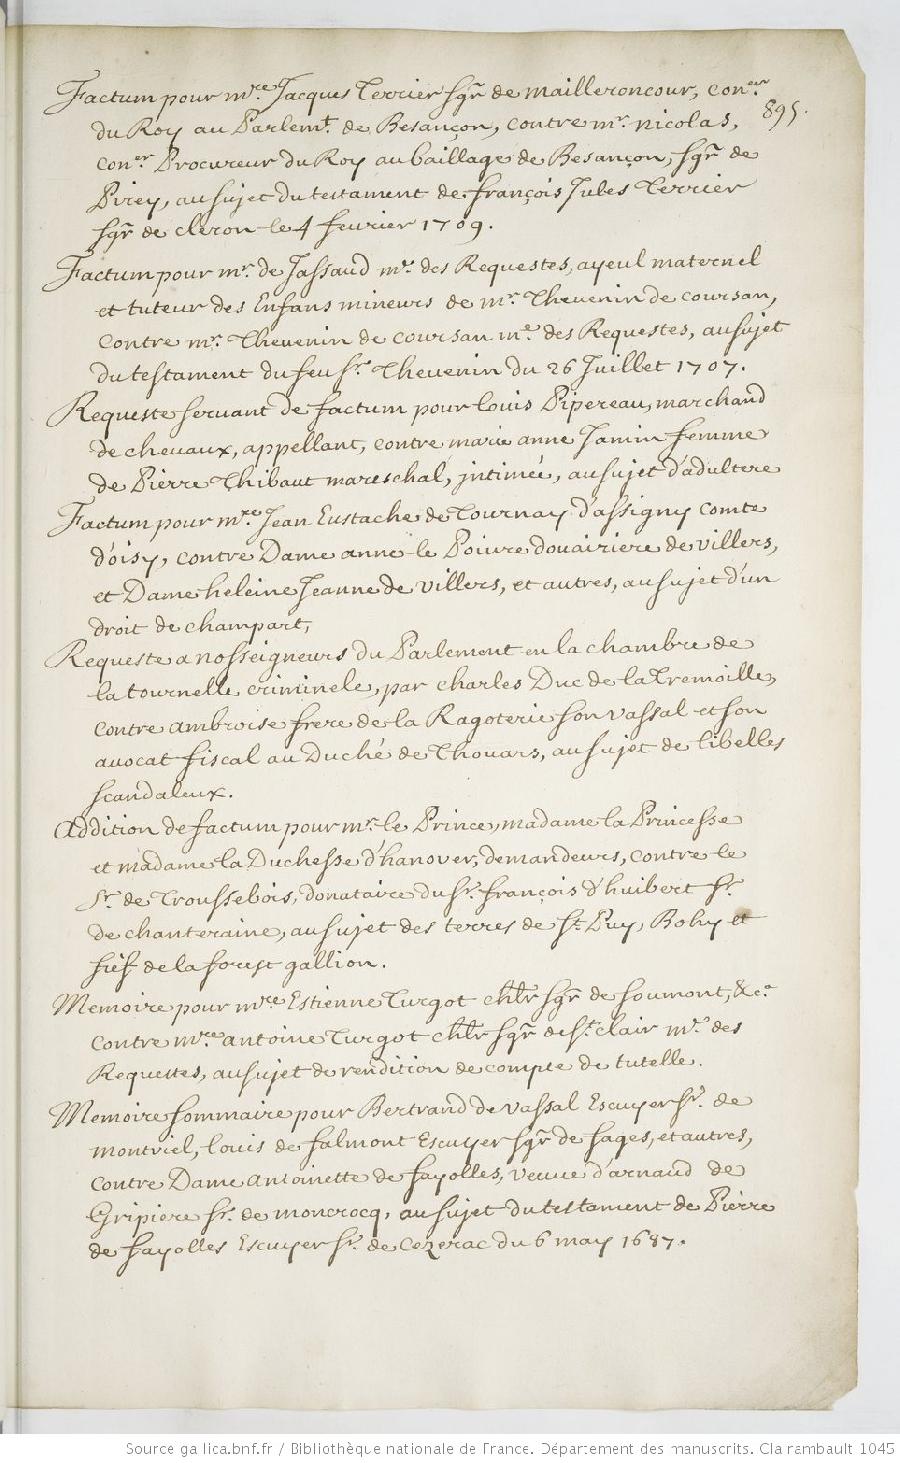 Factum pour mre. Jacques Terrier sgr de mailleroncour, coner
895.
du Roy au Parlemt. de Besançon, contre mr. nicolas,
coner. Procureur du Roy au baillage de Besançon, sgr de
Pirey, au sujet du testament de françois Jules Terrier
sgr de cleron le 4 fevrier 1709.
Factum pour mr. de Jassaud me. des Requestes, ayeul maternel
et tuteur des Enfans mineurs de mr. Thevenin de coursan,
contre mr. Thevenin de coursan me. des Requestes, au sujet
du testament du feu sr. Thevenin du 26 Juillet 1707.
Requeste servant de factum pour louis Pipereau, marchand
de chevaux, appellant, contre marie anne Jamin femme
de Pierre Thibaut mareschal, intimée, au sujet d'adultere
Factum pour mre Jean Eustache de Tournay d'assigny comte
d'oisy, contre Dame anne le Poivre douairiere de villers,
et Dame heleine Jeanne de villers, et autres, au sujet d'un
droit de champart,
Requeste a nosseigneurs du Parlement en la chambre de
la tournelle criminele, par charles Duc de la Tremoille,
contre ambroise frere de la Ragoterie son vassal et son
avocat fiscal au Duché de Thouars, au sujet de libelles
scandaleux.
Addition de factum pour mr. le Prince, madame la Princesse
et madame la Duchesse d'hanover, demandeurs, contre le
sr. de Troussebois, donataire du sr. françois d'huibert sr.
de chanteraine, au sujet des terres de st Puy, Bohy et
fief de la forest gallion.
Memoire pour mre Estienne Turgot chlr sgr de soumont, &ca.
contre mre. antoine Turgot chlr sgr de st. clair me. des
Requestes, au sujet de rendition de compte de tutelle.
Memoire sommaire pour Bertrand de vassal Escuyer sr. de
montviel, louis de salmont Escuyer sgr de sages, et autres,
contre Dame antoinette de fayolles, veuve d'arnaud de
Gripiere sr. de moncrocq, au sujet du testament de Pierre
de fayolles Escuyer sr. de Cozerac du 6 may 1687.
Source gallica.bnf.fr / Bibliothèque nationale de France. Département des manuscrits. Clairambault 1045